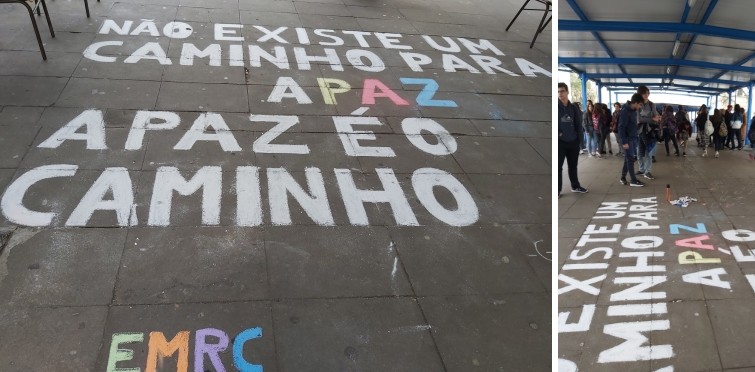 NÃO EXISTE UM
CAMINHO PARA
A PAZ
A PAZ É O
CAMINHO
EMRC
EXISTE UM
MINHO PARA
A PAZ
É O